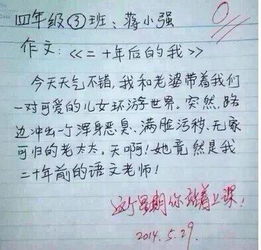 四年级③班：蒋小强
作文：<<二十年后的我>>
今天天气不错，我和老婆带着我们
一对可爱的儿女环游世界。突然，路
边冲出一个浑身恶臭、满脸污秽、无家
可归的老太太。天啊！她竟然是我
二十年前的语文老师！
这个星期你站着上课！
2014.5.29.